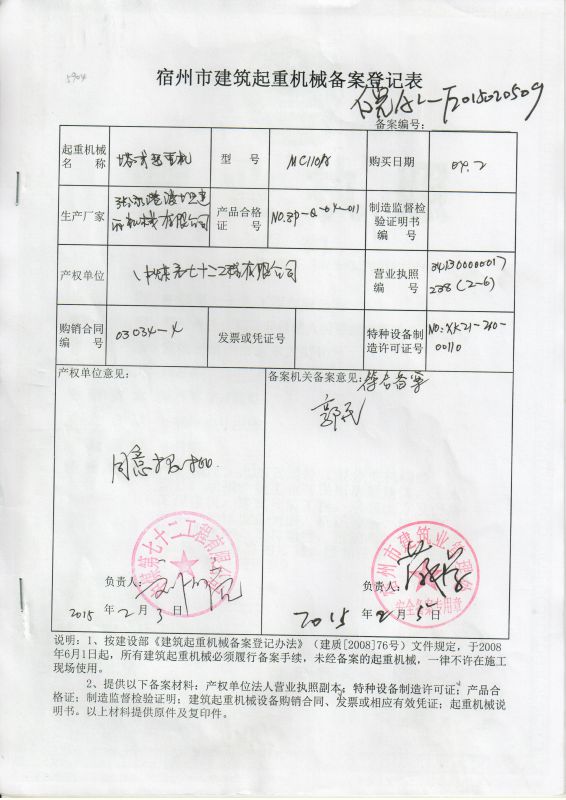 5904
宿州市建筑起重机械备案登记表
备案编号：
起重机械
名　称
塔式起重机
型　号
MC110A
购买日期
04.2
生产厂家
产品合格
证　号
制造监督检
验证明书
编　号
产权单位
中煤第七十二工程有限公司
营业执照
编　号
34130000017
238 (2-6)
购销合同
编　号
03034-4
发票或凭证号
特种设备制
造许可证号
NO:XK21-210-
00110
产权单位意见：
同意
备案机关备案意见：符合备案
郭民
第七十二工程有限公司
宿州市建筑业管理
安全备案专用章
负责人：
2015年2月3日
负责人：
2015年2月5日
说明：1、按建设部《建筑起重机械备案登记办法》（建质[2008]76号）文件规定，于2008
年6月1日起，所有建筑起重机械必须履行备案手续，未经备案的起重机械，一律不许在施工
现场使用。
2、提供以下备案材料：产权单位法人营业执照副本；特种设备制造许可证；产品合
格证；制造监督检验证明；建筑起重机械设备购销合同、发票或相应有效凭证；起重机械说
明书。以上材料提供原件及复印件。